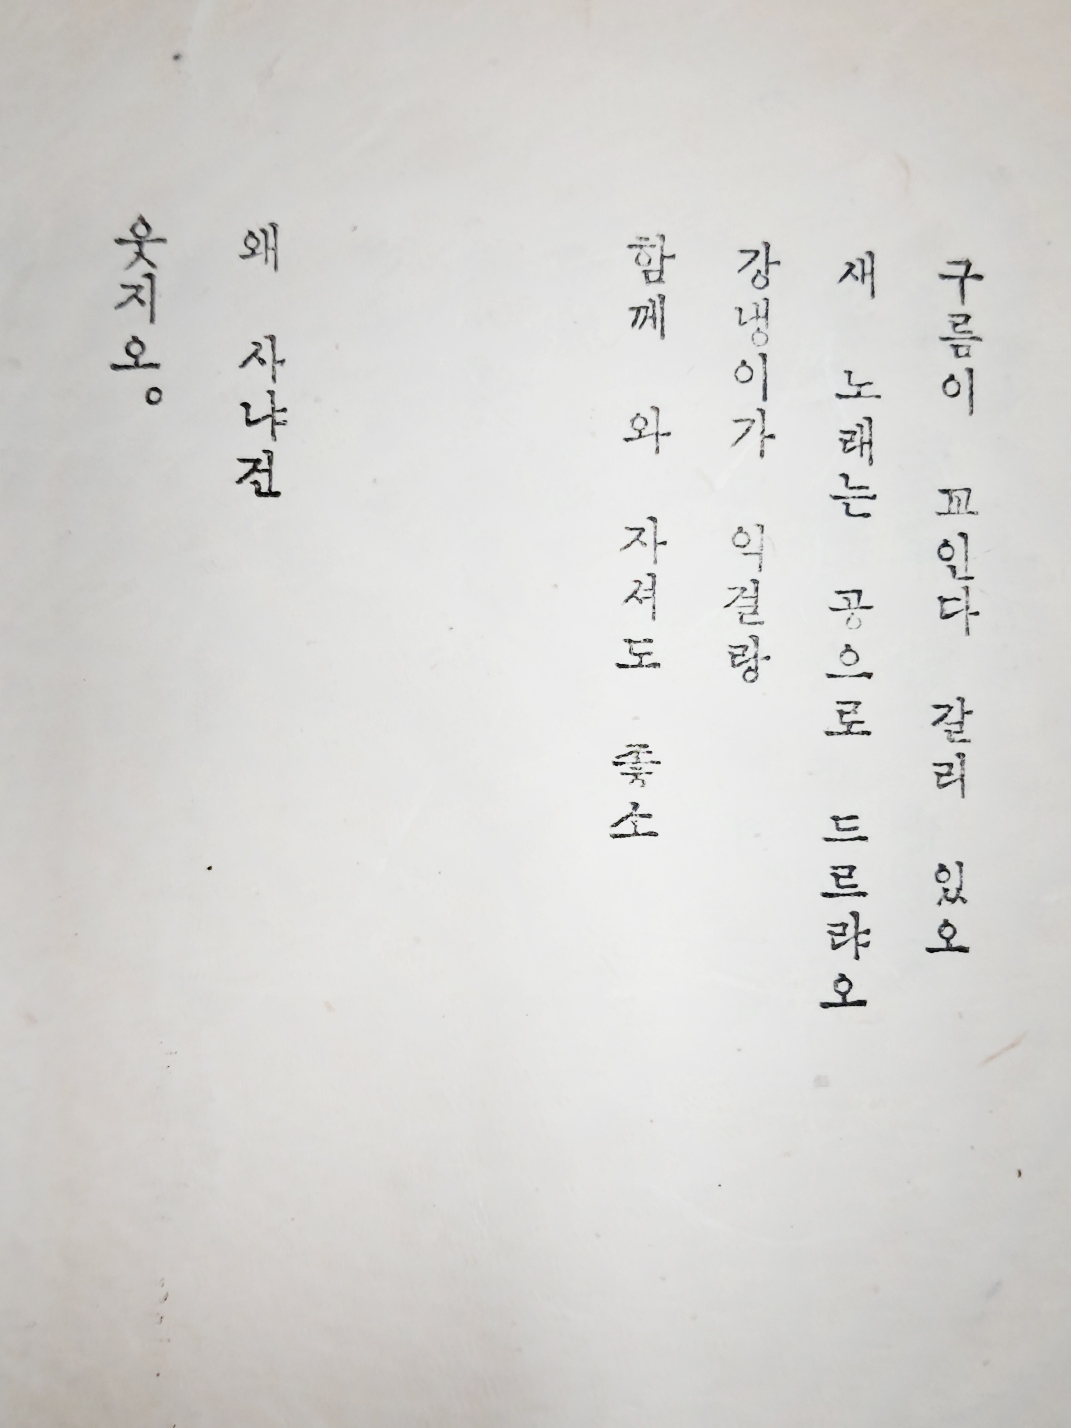 구름이 꼬인다 갈리 있오
새 노래는 공으로 드르랴오
강냉이가 익걸랑
함께 와 자셔도 좋소
왜 사냐건
웃지오。